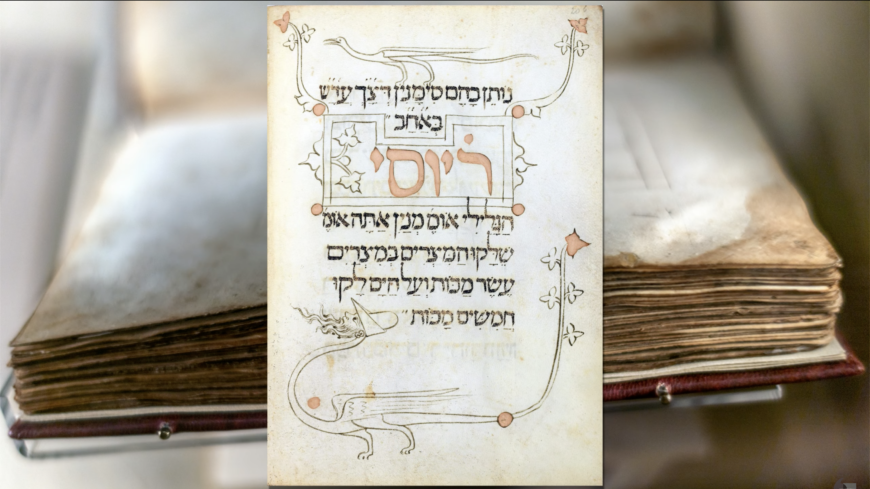 נותן בהם סימנין דצך עדש
באחב
ר יוסי
הגלילי אומ מנין אתה אומ
שלקו המצרים במצרים
עשר מכות ועל הים לקו
חמשים מכות